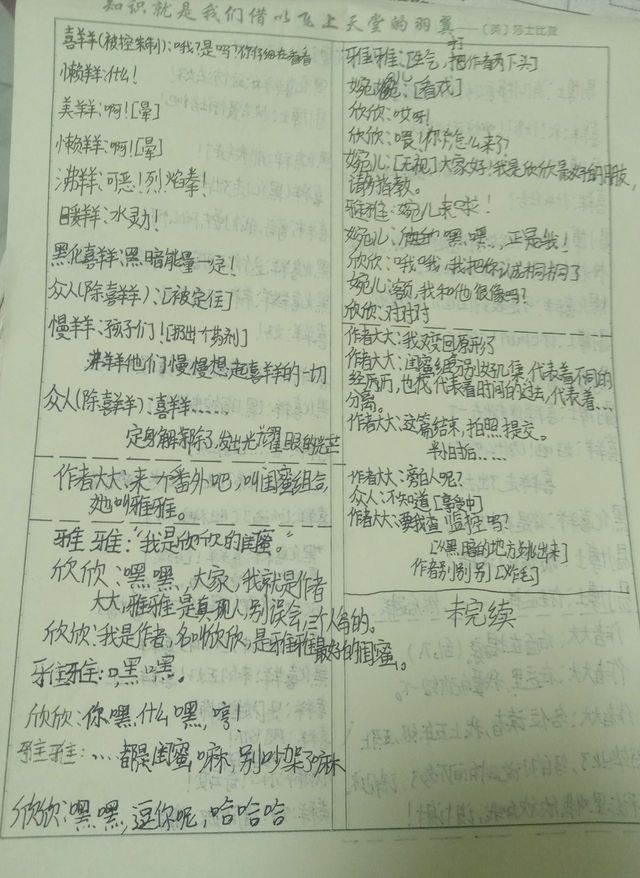 知识就是我们借以飞上天堂的羽翼——(英)莎士比亚
喜羊羊(被控制):哦?是吗?你仔细在看看
懒羊羊:什么!
美羊羊:啊![晕]
懒羊羊:啊![晕]
沸羊羊:可恶!烈焰拳!
暖羊羊:水动!
黑化喜羊羊:黑暗能量一定!
众人(除喜羊羊):[被定住]
慢羊羊:孩子们![扔出个药剂]
沸羊羊他们慢慢想起喜羊羊的一切
众人(除喜羊羊):喜羊羊……
定身解除了,发出光耀眼的光芒
作者大大:来个番外吧,叫闺蜜组合,
她叫雅雅。
雅雅:“我是欣欣的闺蜜。”
欣欣:嘿嘿,大家,我就是作者
大大,雅雅是真现人别误会,三个人写的。
欣欣:我是作者,名叫欣欣,是雅雅最好的闺蜜。
雅雅:嘿嘿。
欣欣:你嘿什么嘿,哼!
雅雅:....都是闺蜜嘛,别吵架了嘛
欣欣:嘿嘿,逗你呢,哈哈哈
雅雅:[生气,把作者打两下头]
婉儿:[看戏]
欣欣:哎呀!
欣欣:喂!你怎么来了
婉儿:[无视]大家好!我是欣欣最好的朋友,
请多指教。
雅雅:婉儿来啦!
婉儿:嘿嘿..正是我!
欣欣:哦哦,我把你认成桐桐了
婉儿:额,我和他很像吗?
欣欣:对对对
作者大大:我变回原形了
作者大大:闺蜜组分别好几集,代表着不同的
经历,也代表着时间的过去,代表着...
分离。
作者大大:这篇结束,拍照提交。
半小时后……
作者大大:旁白人呢?
众人:不知道[享受中]
作者大大:要我查监控吗?
[从黑暗的地方跳出来]
作者别别别[炸毛]
未完续